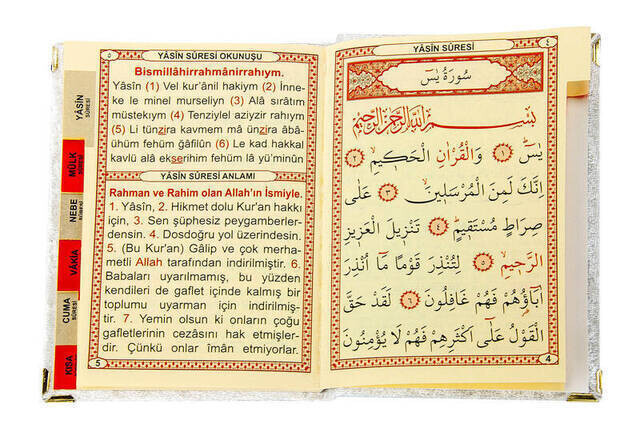 YÂSİN SÛRESİ OKUNUŞU
Bismillâhirrahmânirrahıym.
Yâsîn (1) Vel kur'ânil hakiym (2) İnne-
ke le minel murseliyn (3) Alâ sırâtim
müstekıym (4) Tenziylel aziyzir rahıym
(5) Li tünzira kavmem mâ ünzira âbâ-
ühüm fehüm ğâfilûn (6) Le kad hakkal
kavlü alâ ekserihim fehüm lâ yü'minûn
YÂSİN SÛRESİ ANLAMI
Rahman ve Rahim olan Allah'ın İsmiyle.
1. Yâsîn, 2. Hikmet dolu Kur'an hakkı
için, 3. Sen şüphesiz peygamberler-
densin. 4. Dosdoğru yol üzerindesin.
5. (Bu Kur'an) Gâlip ve çok merha-
metli Allah tarafından indirilmiştir. 6.
Babaları uyarılmamış, bu yüzden
kendileri de gaflet içinde kalmış bir
toplumu uyarman için indirilmiş-
tir. 7. Yemin olsun ki onların çoğu
gafletlerinin cezasını hak etmişler-
dir. Çünkü onlar îmân etmiyorlar.
5
YÂSİN SÛRESİ
MÜLK SÛRESİ
NEBE SÛRESİ
VÂKIA
CUMA SÛRESİ
KISA
YÂSİN SÛRESİ
٤
سُورَةُ يٰسٓ
بِسْمِ اللّٰهِ الرَّحْمٰنِ الرَّحِيمِ
يٰسٓ ﴿١﴾ وَالْقُرْاٰنِ الْحَكِيمِ ﴿٢﴾
اِنَّكَ لَمِنَ الْمُرْسَلِينَ ﴿٣﴾ عَلٰى
صِرَاطٍ مُسْتَقِيمٍ ﴿٤﴾ تَنْزِيلَ الْعَزِيزِ
الرَّحِيمِ ﴿٥﴾ لِتُنْذِرَ قَوْمًا مَٓا اُنْذِرَ
اٰبَٓاؤُهُمْ فَهُمْ غَافِلُونَ ﴿٦﴾ لَقَدْ حَقَّ
الْقَوْلُ عَلٰٓى اَكْثَرِهِمْ فَهُمْ لَا يُؤْمِنُونَ
4